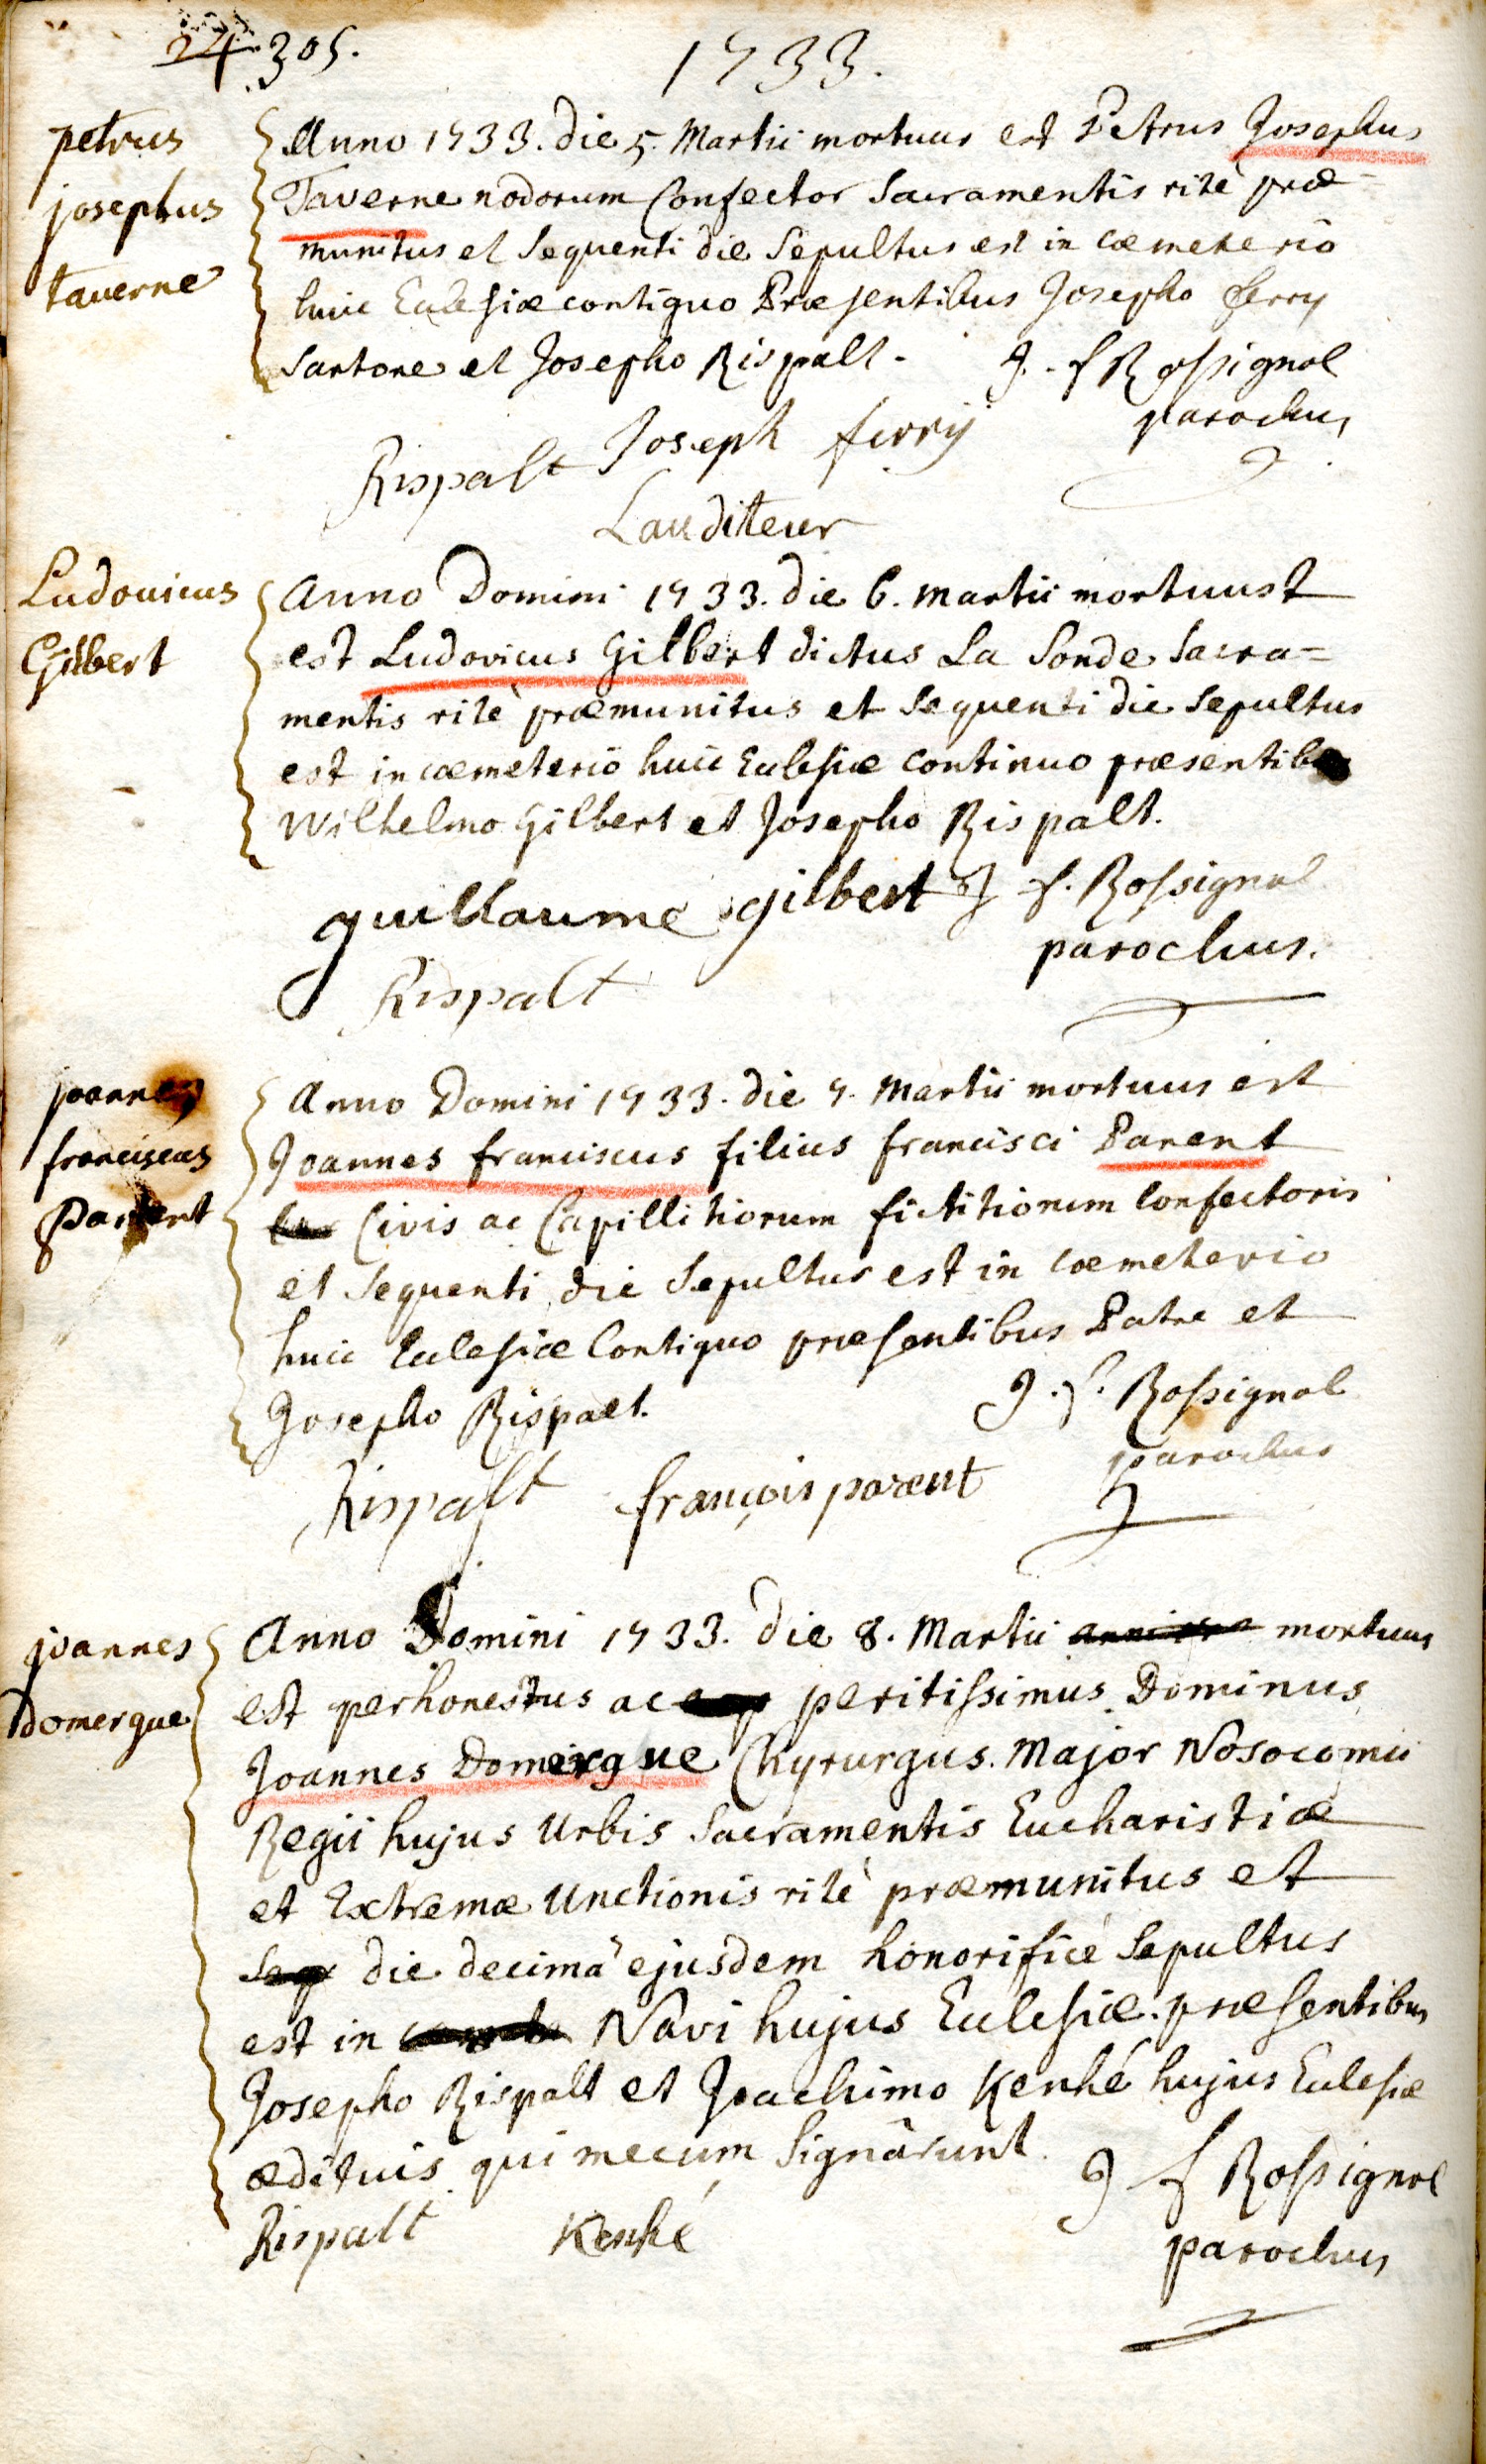 24 305.
1733.
petrus
josephus
taverne
Anno 1733. die 5. Martii mortuus est Petrus Josephus
Taverne nodorum Confector Sacramentis ritè præ=
munitus et sequenti die Sepultus est in cœmeterio
huic Ecclesiæ contiguo Præsentibus Josepho ferry
Sartore et Josepho Rispalt.
J. f Rossignol
parochus
Rispalt Joseph ferrÿ
Lauditeur
Ludovicus
Gilbert
Anno Domini 1733. die 6. Martii mortuust
est Ludovicus Gilbert dictus La Sonde Sacra=
mentis ritè præmunitus et sequenti die Sepultus
est in cœmeterio huic Ecclesiæ continuo præsentibus
Wilhelmo Gilbert et Josepho Rispalt.
guillaume gilbert J f. Rossignol
parochus.
Rispalt
joannes
franciscus
Parent
Anno Domini 1733. die 7. Martii mortuus est
Joannes franciscus filius francisci Parent
Civis ac Capillitiorum fictitiorum Confectoris
et sequenti die Sepultus est in cœmeterio
huic Ecclesiæ Contiguo præsentibus Patre et
Josepho Rispalt.
J. f. Rossignol
parochus
Rispalt françois parent
joannes
domergue
Anno Domini 1733. die 8. Martii mortuus
est perhonestus ac peritissimus Dominus
Joannes Domergue Chyrurgus Major Nosocomii
Regii hujus Urbis Sacramentis Eucharistiæ
et Extremæ Unctionis ritè præmunitus et
seq die decimâ ejusdem honorificè Sepultus
est in Navi hujus Ecclesiæ. præsentibus
Josepho Rispalt et Joachimo Kenhé hujus Ecclesiæ
ædituis qui mecum Signârunt.
J f Rossignol
parochus
Rispalt Kenhé